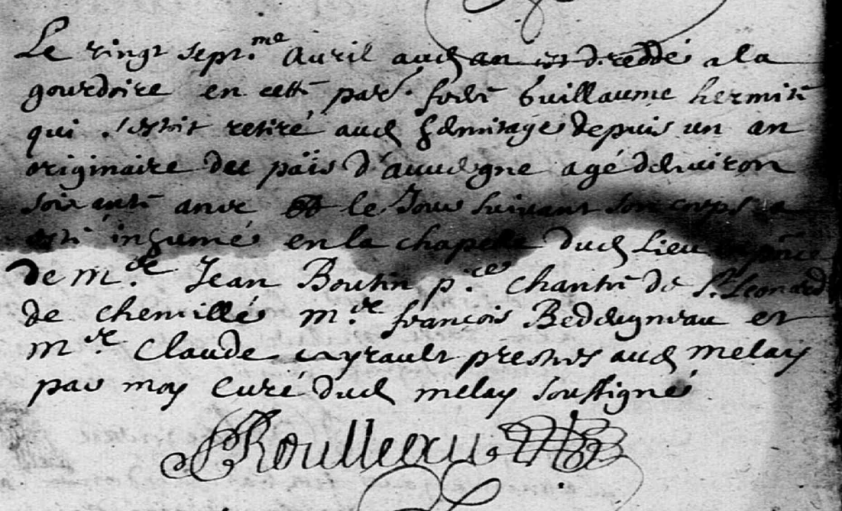 Le vingt sept.me Avril aud an est decedé a la
gourdoire en cette par. Guillaume hermite
qui s'estoit retiré aud hermitage depuis un an
originaire du païs d'auvergne agé denviron
soixante ans et le Jour suivant son corps a
esté inhumé en la chapelle dud Lieu
de m.re Jean Boutin p. chantre de S.t Leonard
de chemillé m.re françois Bedeugneau et
m.re Claude prestres aud melay
par moy Curé dud melay soussigné
Roulleau